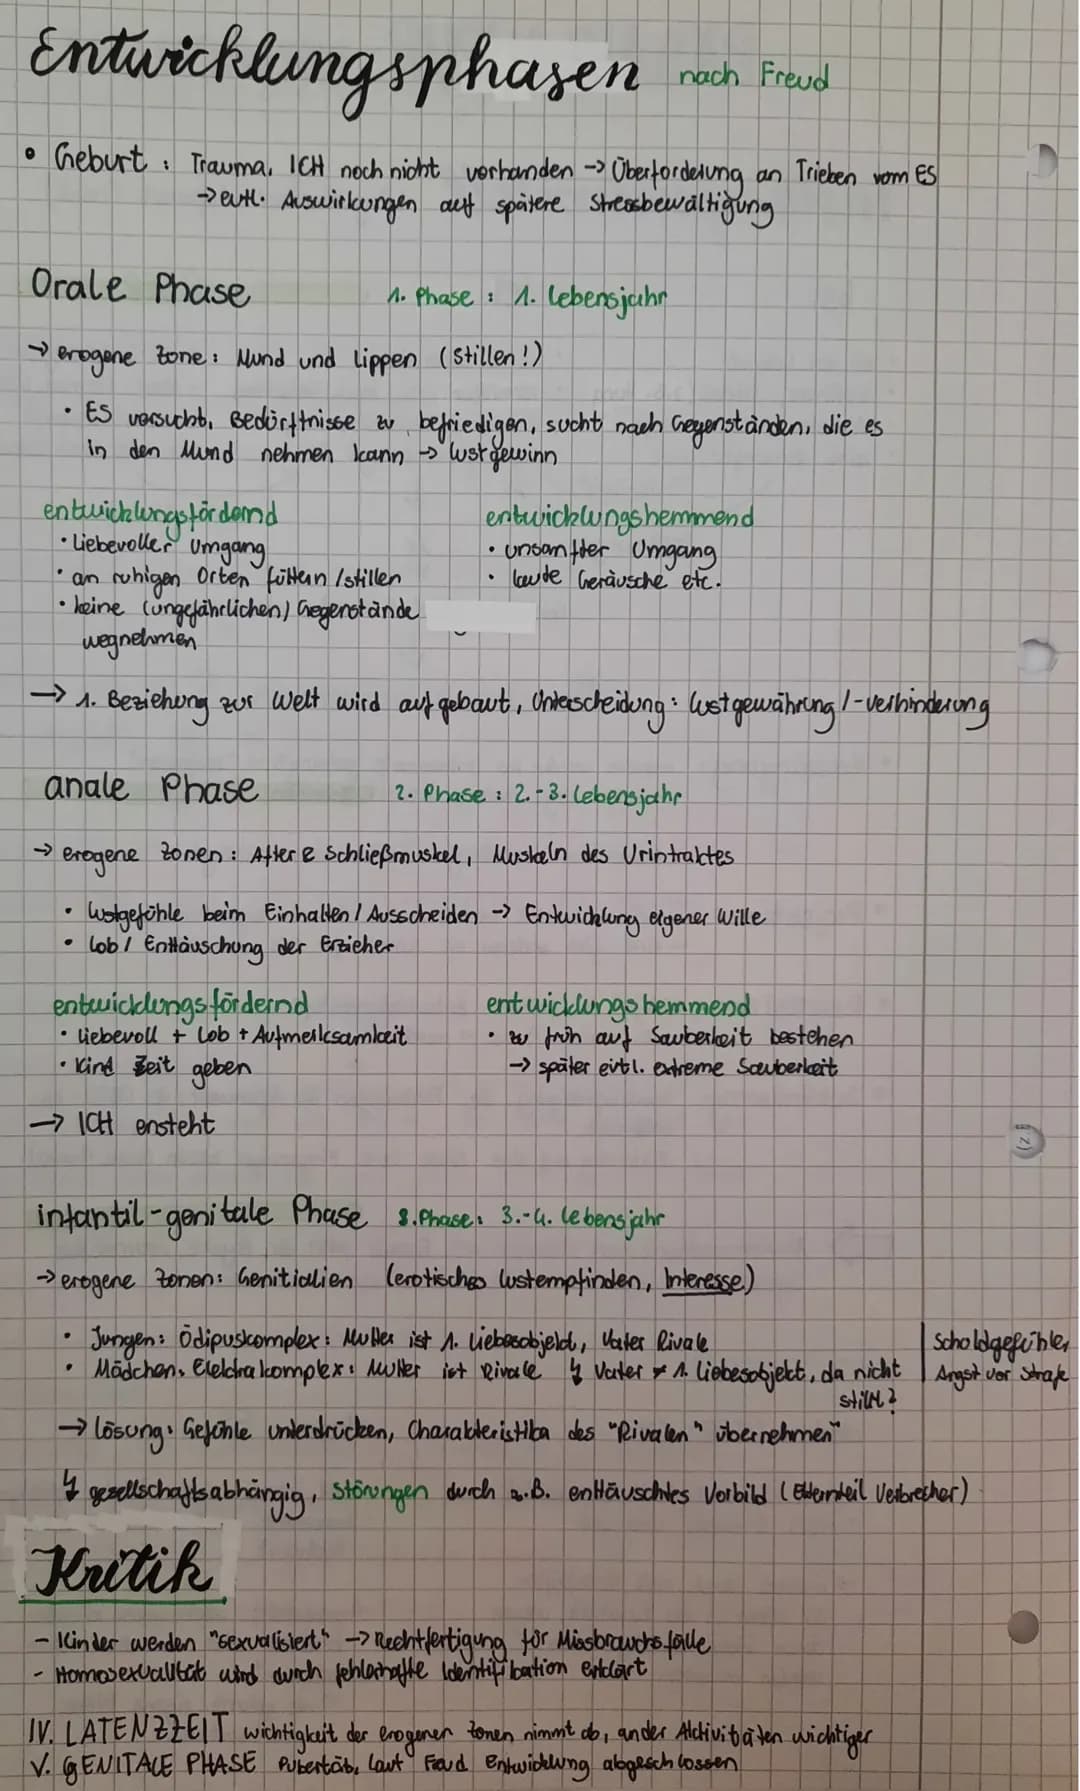 Entwicklungsphasen nach Freud
• Geburt: Trauma, ICH noch nicht vorhanden -> Überforderung an Trieben vom ES
-> evtl. Auswirkungen auf spätere Stressbewältigung
Orale Phase 1. Phase: 1. Lebensjahr
-> erogene Zone: Mund und Lippen (Stillen!)
• ES versucht, Bedürfnisse zu befriedigen, sucht nach Gegenständen, die es
in den Mund nehmen kann -> Lustgewinn
entwicklungsfördernd entwicklungshemmend
• Liebevoller Umgang • unsanfter Umgang
• an ruhigen Orten füttern / stillen • laute Geräusche etc.
• keine (ungefährlichen) Gegenstände
wegnehmen
-> 1. Beziehung zur Welt wird aufgebaut, Unterscheidung: Lustgewährung /-verhinderung
anale Phase 2. Phase: 2.-3. Lebensjahr
-> erogene Zonen: After & Schließmuskel, Muskeln des Urintraktes
• Lustgefühle beim Einhalten / Ausscheiden -> Entwicklung eigener Wille
• Lob / Enttäuschung der Erzieher
entwicklungsfördernd entwicklungshemmend
• Liebevoll + Lob + Aufmerksamkeit • zu früh auf Sauberkeit bestehen
• Kind Zeit geben -> später evtl. extreme Sauberkeit
-> ICH ensteht
infantil-genitale Phase 3. Phase: 3.-4. Lebensjahr
-> erogene Zonen: Genitialien (erotisches Lustempfinden, Interesse)
• Jungen: Ödipuskomplex: Mutter ist 1. Liebesobjekt, Vater Rivale Schuldgefühle,
• Mädchen: Elektrakomplex: Mutter ist Rivale ↯ Vater ≠ 1. Liebesobjekt, da nicht Angst vor Strafe
stillt?
-> Lösung: Gefühle unterdrücken, Charakteristika des "Rivalen" übernehmen"
↯ gesellschaftsabhängig, Störungen durch z.B. enttäuschtes Vorbild (Elternteil Verbrecher)
Kritik
- Kinder werden "sexualisiert" -> Rechtfertigung für Missbrauchsfälle
- Homosexualität wird durch fehlerhafte Identifikation erklärt
IV. LATENZZEIT wichtigkeit der erogenen Zonen nimmt ab, ander Aktivitäten wichtiger
V. GENITALE PHASE Pubertät, laut Freud Entwicklung abgeschlossen